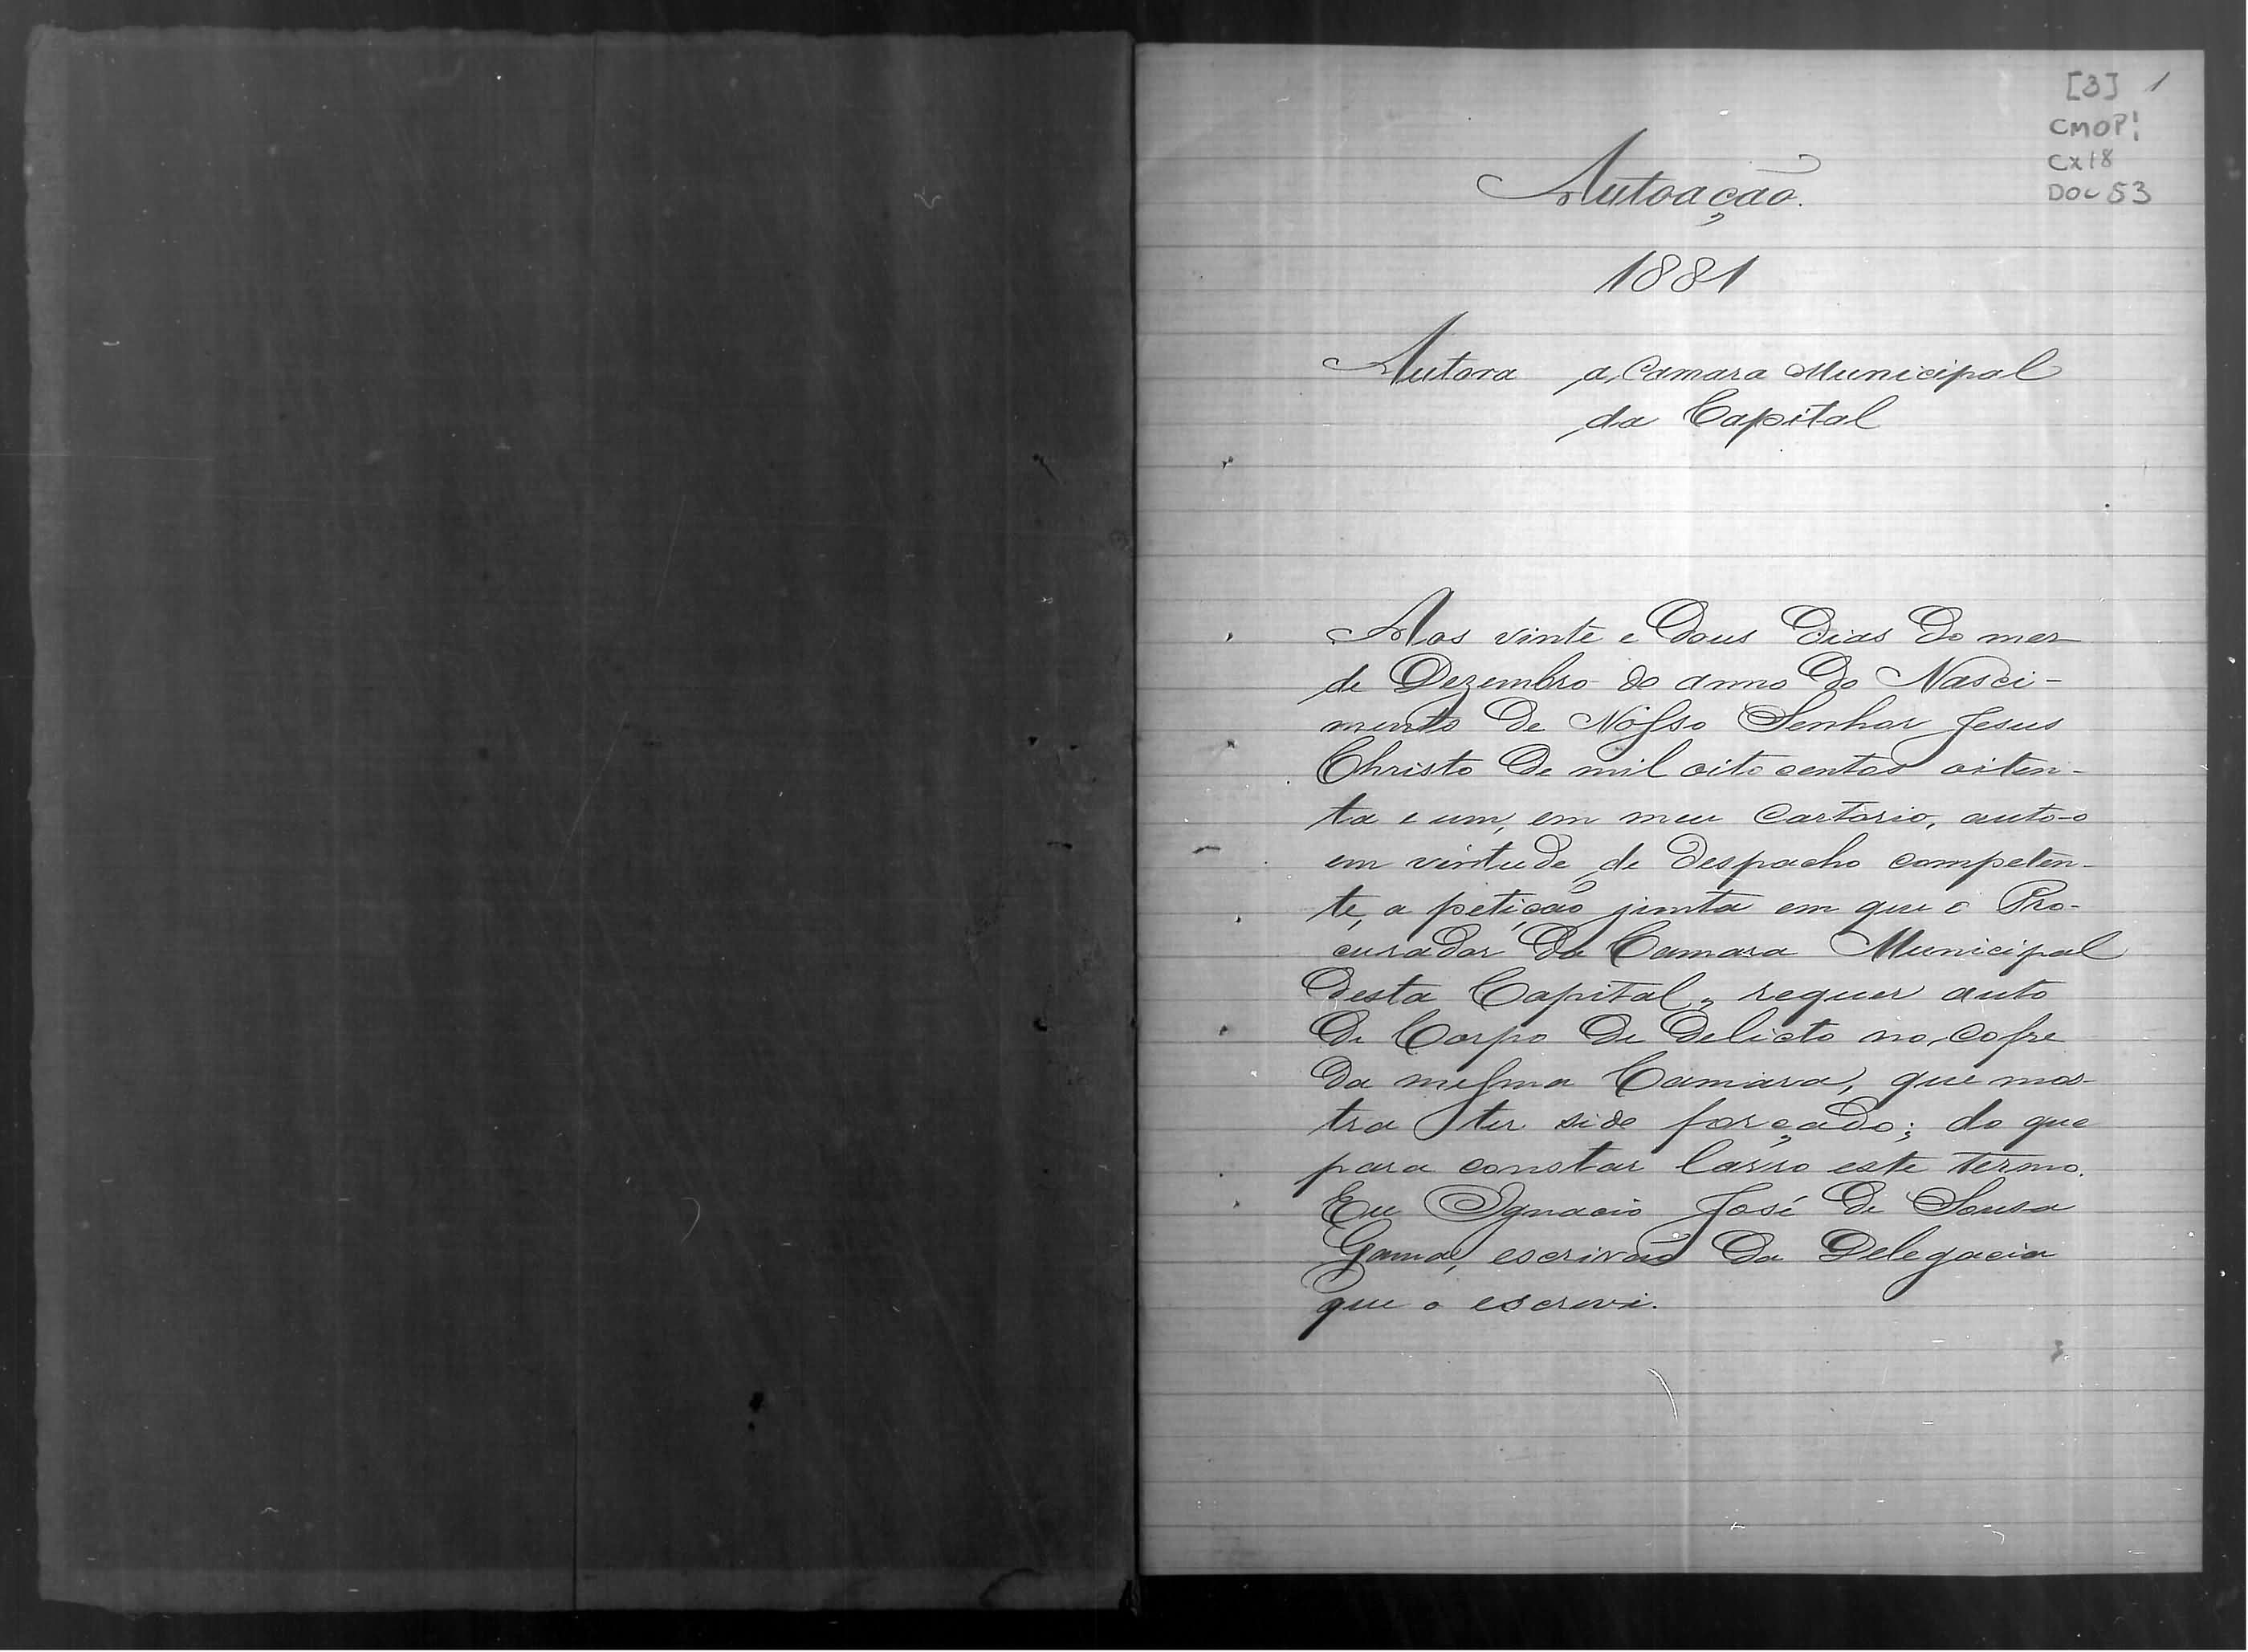 [3] 1
CMOP
CX18
DOC 53
Autoação.
1881
Autora a Camara Municipal
da Capital
Aos vinte e dous dias do mez
de Dezembro do anno do Nasci-
mento de Nosso Senhor Jesus
Christo de mil oito centos oiten-
ta e um, em meu Cartorio, auto-o
em virtude de despacho competen-
te, a petição junta em que o Pro-
curador da Camara Municipal
desta Capital, requer auto
de Corpo de delicto no cofre
da mesma Camara, que mos-
tra ter sido forçado; do que
para constar lavro este termo.
Eu Ignacio José de Sousa
Gama, escrivão da Delegacia
que o escrevi.